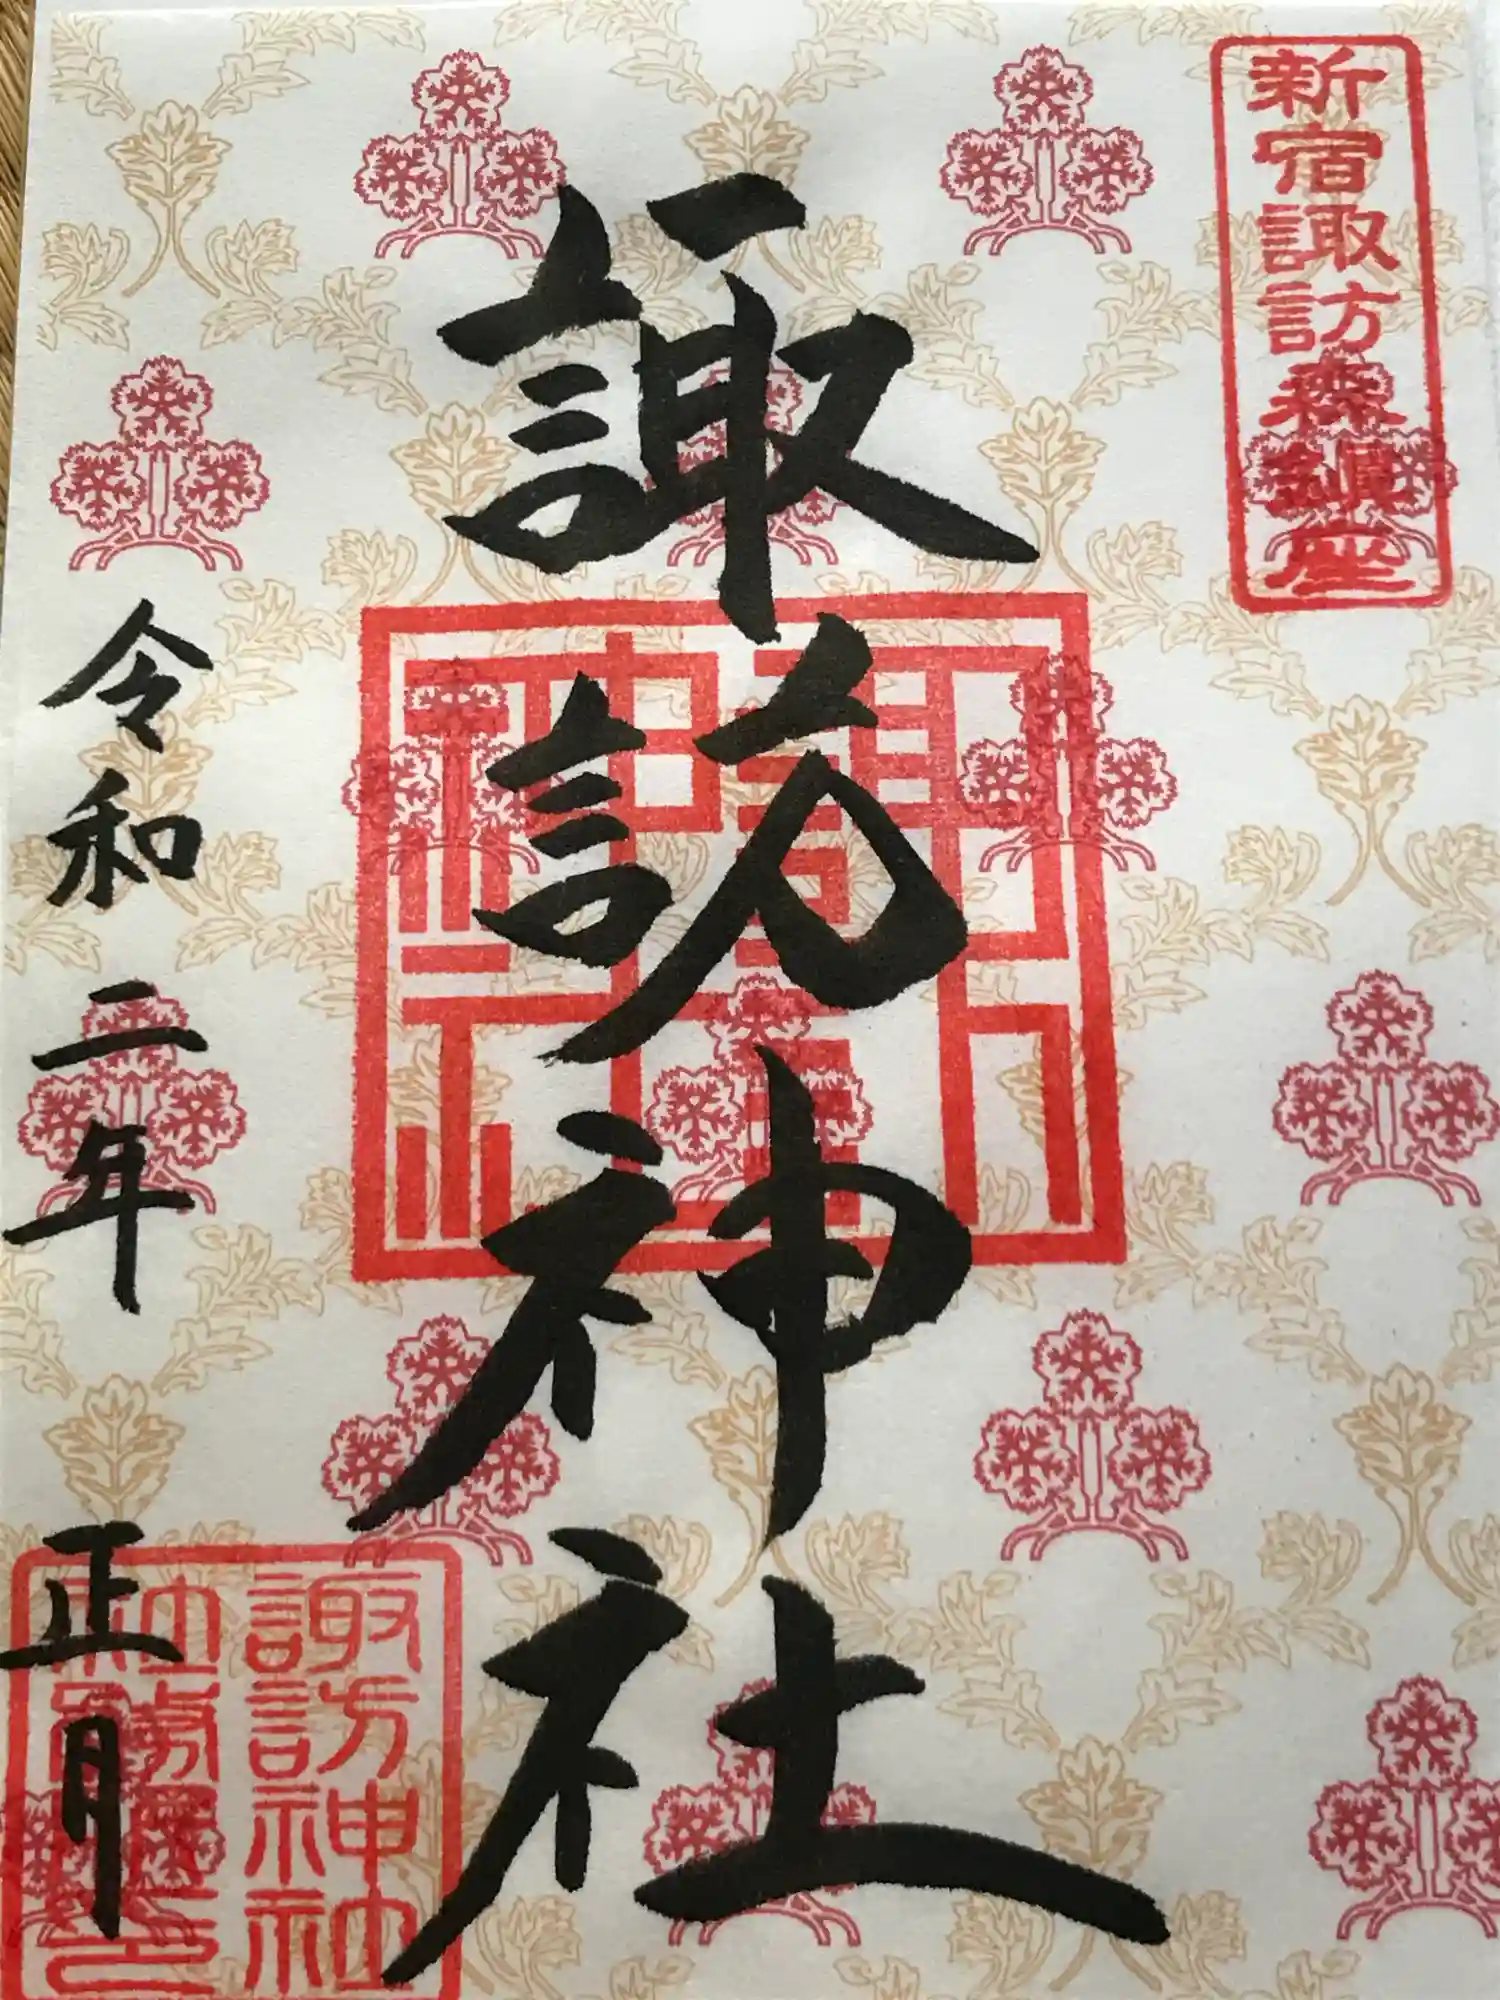 新宿諏訪森鎮座
諏訪神社
諏訪神社
令和二年
正月
諏訪神社
社務所之印